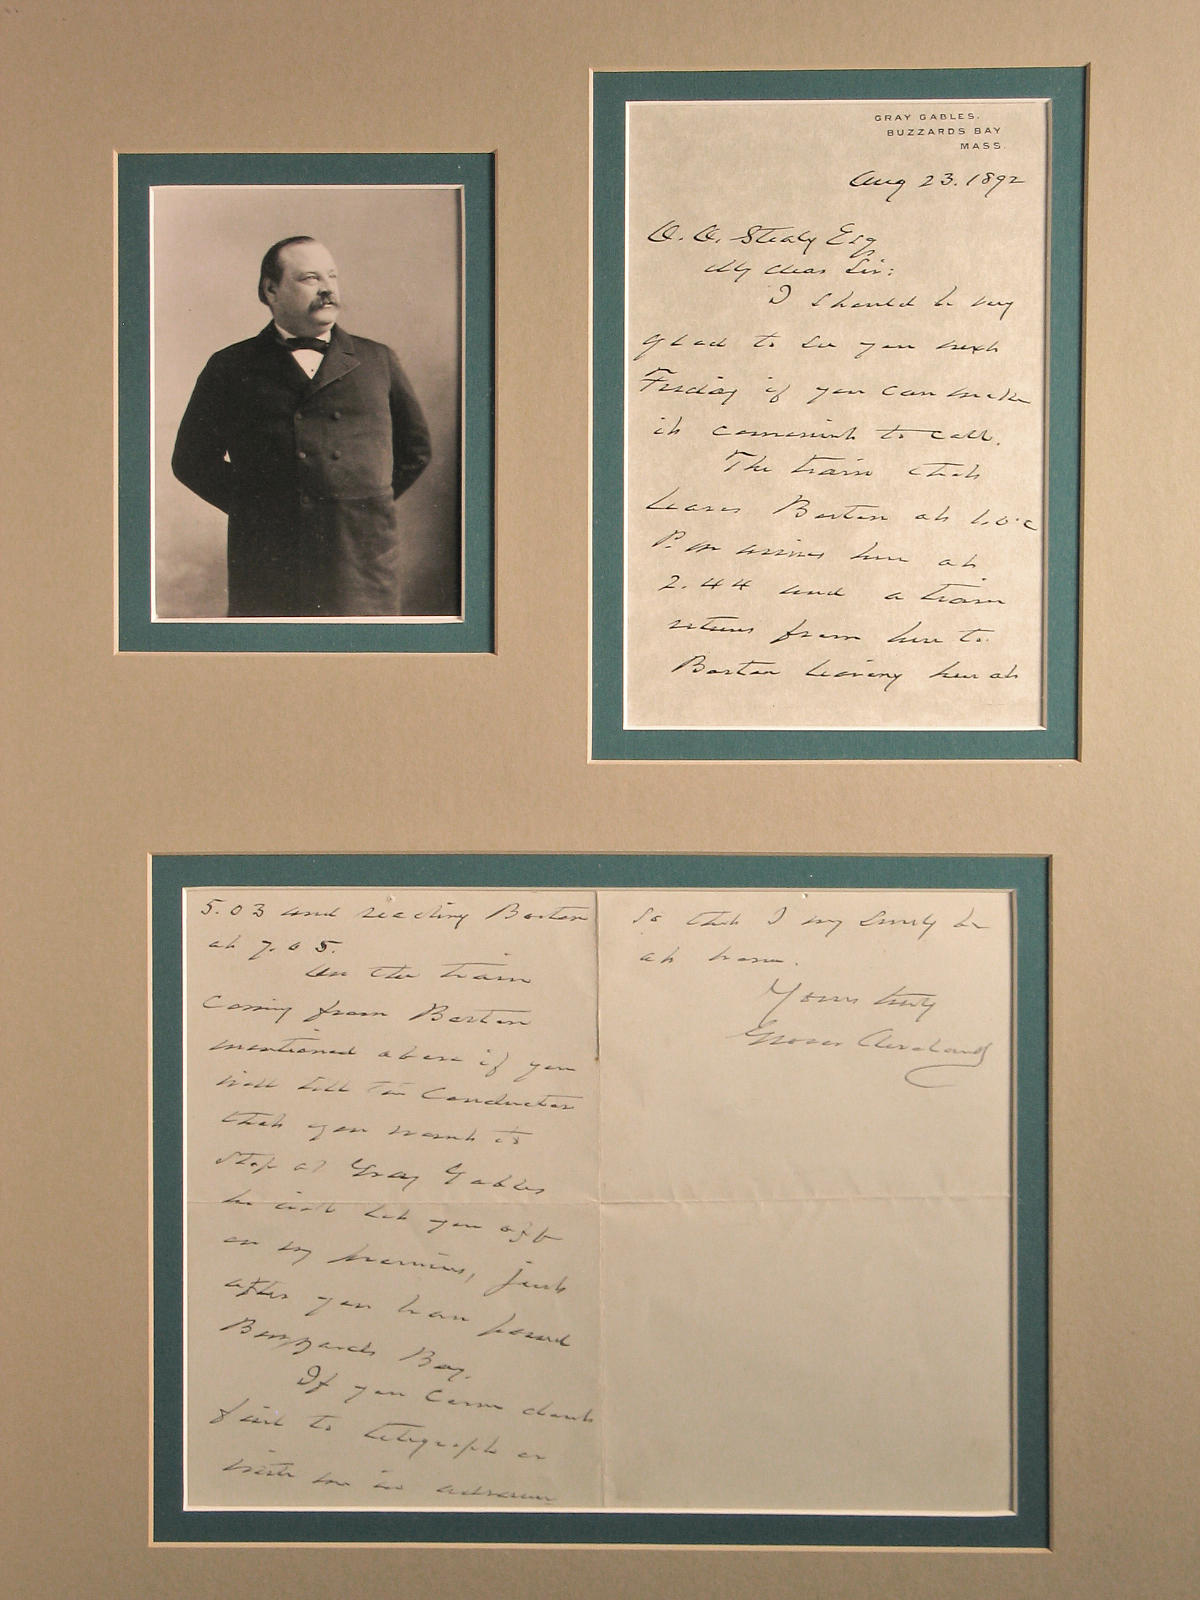 GRAY GABLES.
BUZZARDS BAY
MASS.
Aug 23. 1892
O. O. Stealy Esq
My dear Sir:
I should be very
glad to see you next
Friday if you can make
it convenient to call.
The train that
leaves Boston at 1.00
P.m arrives here at
2.44 and a train
returns from here to
Boston leaving here at
5.03 and reaching Boston
at 7.05.
On the train
coming from Boston
mentioned above if you
will tell the Conductor
that you want to
stop at Gray Gables
he will let you off
on my premises, just
after you have passed
Buzzards Bay.
If you come dont
fail to telegraph or
write me in advance
so that I may surely be
at home.
Yours truly
Grover Cleveland